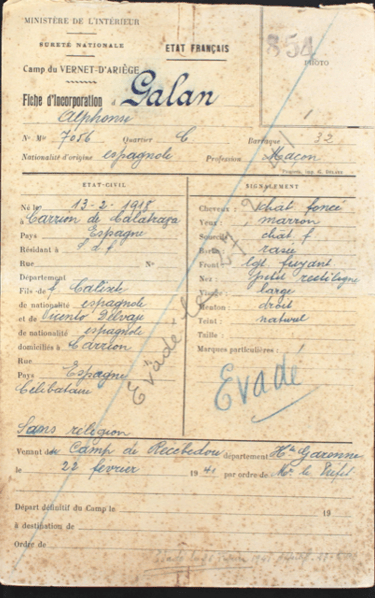 MINISTÈRE DE L'INTÉRIEUR
SURETÉ NATIONALE
ETAT FRANÇAIS
854
PHOTO
Camp du VERNET-D'ARIÈGE
Fiche d'Incorporation Galan
Alphonse
N° Mle 7086 Quartier C Baraque 32
Nationalité d'origine espagnole Profession Macon
ETAT-CIVIL
Né le 13-2-1918
Carrion de Calatrava
Pays Espagne
Résidant à S d f
Rue N°
Département
Fils de f. Calixte
de nationalité espagnole
et de
de nationalité espagnole
domiciliés à Carrion
Rue
Pays Espagne
Célibataire
Sans religion
SIGNALEMENT
Cheveux : chat foncé
Yeux : marron
Sourcils chat f
Barbe : rasée
Front : lgt fuyant
Nez : rectiligne
Visage : large
Menton : droit
Teint : naturel
Taille :
Marques particulières :
Evadé le
Evadé
Venant du Camp de Recebedou département Hte Garonne
le 22 février 1941 par ordre de Mr le Préfet
Départ définitif du Camp le 19
à destination de
Ordre de